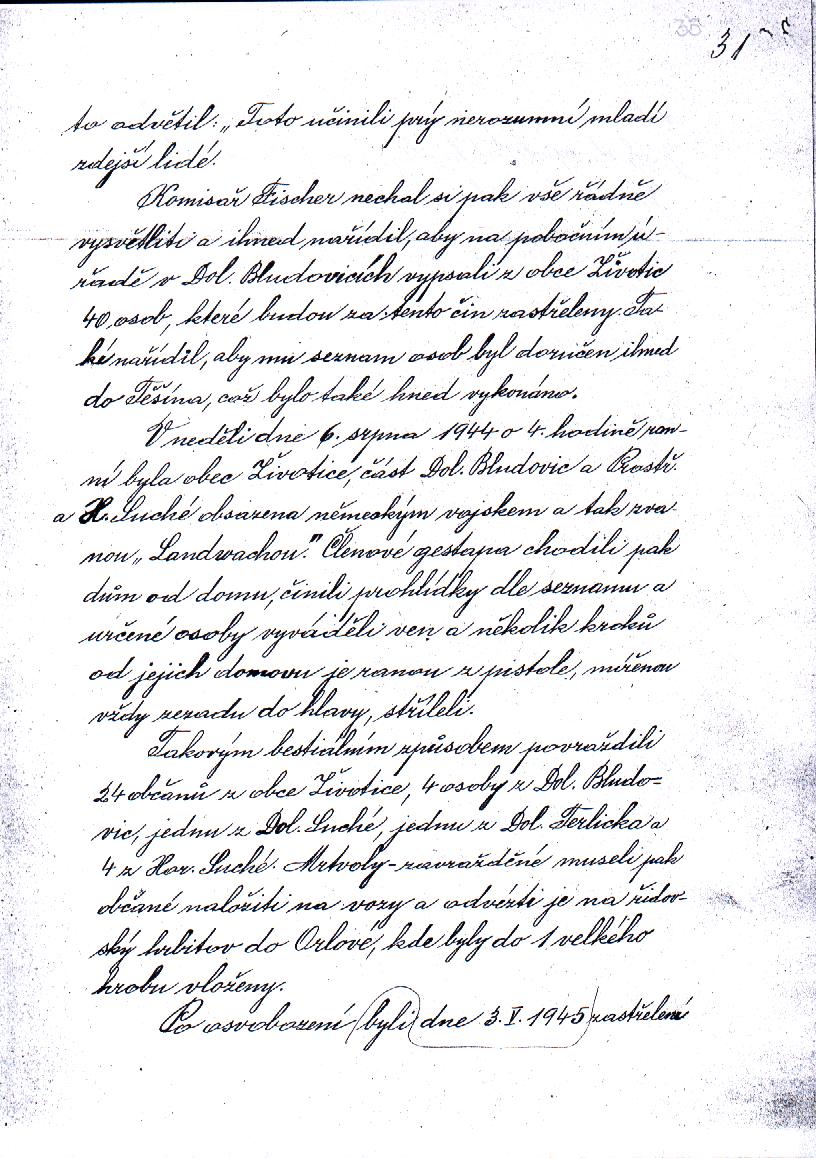 35
31
to odvětil: „Toto učinili prý nerozumní mladí
zdejší lidé.
Komisař Fischer nechal si pak vše řádně
vysvětliti a ihned nařídil, aby na pobočním ú-
řadě v Dol. Bludovicích vypsali z obce Životic
40 osob, které budou za tento čin zastřeleny. Ta-
ké nařídil, aby mu seznam osob byl doručen ihned
do Těšína, což bylo také hned vykonáno.
V neděli dne 6. srpna 1944 o 4. hodině ran-
ní byla obec Životice, část Dol. Bludovic a Prostř.
a H. Suché obsazena německým vojskem a tak zva-
nou „Landwachou." Členové gestapa chodili pak
dům od domu, činili prohlídky dle seznamu a
určené osoby vyváděli ven a několik kroků
od jejich domovu je ranou z pistole, mířenou
vždy zezadu do hlavy, stříleli.
Takovým bestiálním způsobem povraždili
24 občanů z obce Životice, 4 osoby z Dol. Bludo-
vic, jednu z Dol. Suché, jednu z Dol. Terlicka a
4 z Hor. Suché. Mrtvoly-zavražděné museli pak
občané naložiti na vozy a odvézti je na židov-
ský hrbitov do Orlové, kde byly do 1 velkého
hrobu vloženy.
Po osvobození byli dne 3.V.1945 zastřelení